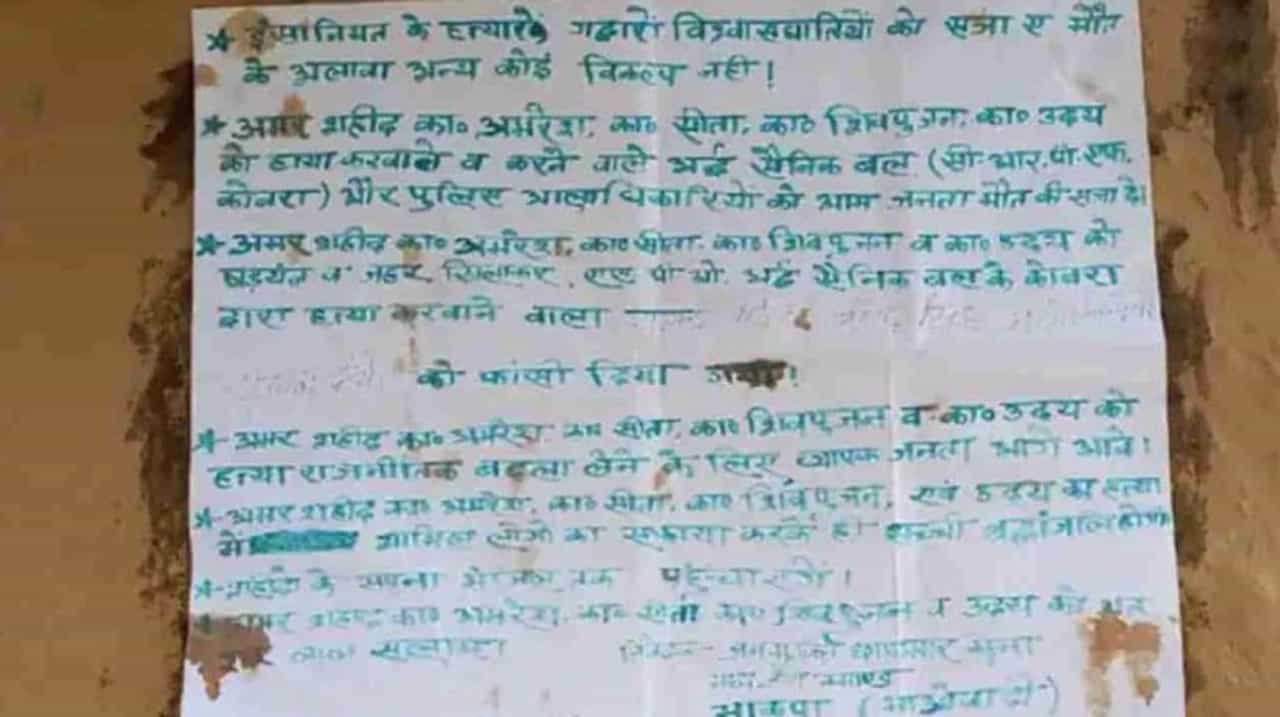 * इंसानियत के हत्यारे गद्दारों विश्वासघातियों को सजा ए मौत
के अलावा अन्य कोई विकल्प नहीं!
* अमर शहीद का० अमरेश, का० सीता, का० शिवपुजन, का० उदय
की हत्या करवाने व करने वाले अर्द्ध सैनिक बल (सी.आर.पी.एफ.
कोबरा) और पुलिस आलाधिकारियों को आम जनता मौत की सजा दें।
* अमर शहीद का० अमरेश, का० सीता, का० शिवपुजन व का० उदय को
षड्यंत्र व जहर खिलाकर, एस पी ओ. अर्द्ध सैनिक बल के कोबरा
द्वारा हत्या करवाने वाला —
को फांसी दिया गया!
* अमर शहीद का० अमरेश, का० सीता, का० शिवपुजन व का० उदय की
हत्या राजनीतिक बदला लेने के लिए व्यापक जनता आगे आवें।
* अमर शहीद का० अमरेश, का० सीता, का० शिवपुजन, एवं उदय का हत्या
में शामिल लोगों का सफाया करके ही सच्ची श्रद्धांजलि
* शहीदों के अपना
अमर शहीद का० अमरेश, का० सीता का० शिवपुजन व उदय को
लाल सलाम
छापामार सेना
भाकपा (माओवादी)